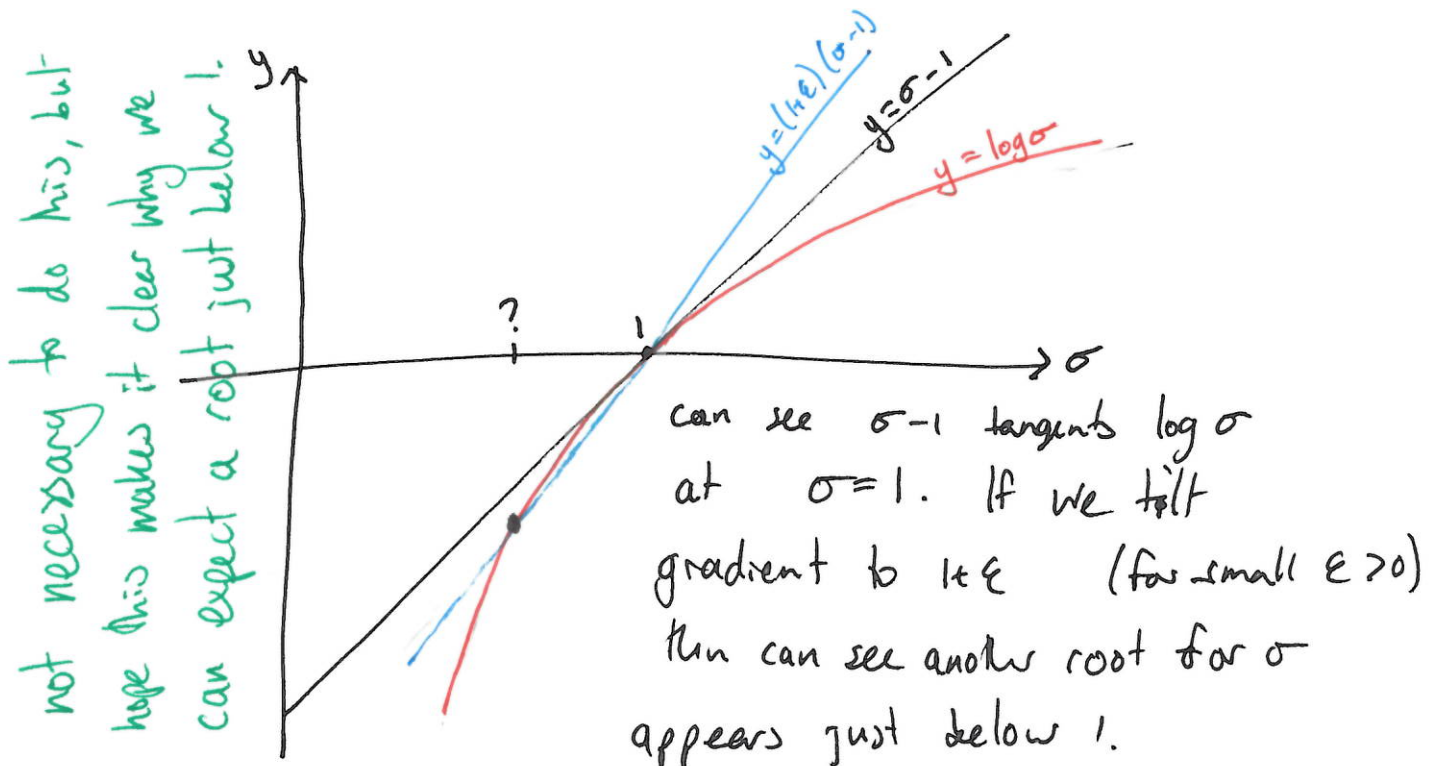 not necessary to do this, but
hope this makes it clear why we
can expect a root just below 1.
y
y=(1+ε)(σ-1)
y=σ-1
y=logσ
?
1
σ
can see σ-1 tangents log σ
at σ=1. If we tilt
gradient to 1+ε (for small ε>0)
then can see another root for σ
appears just below 1.